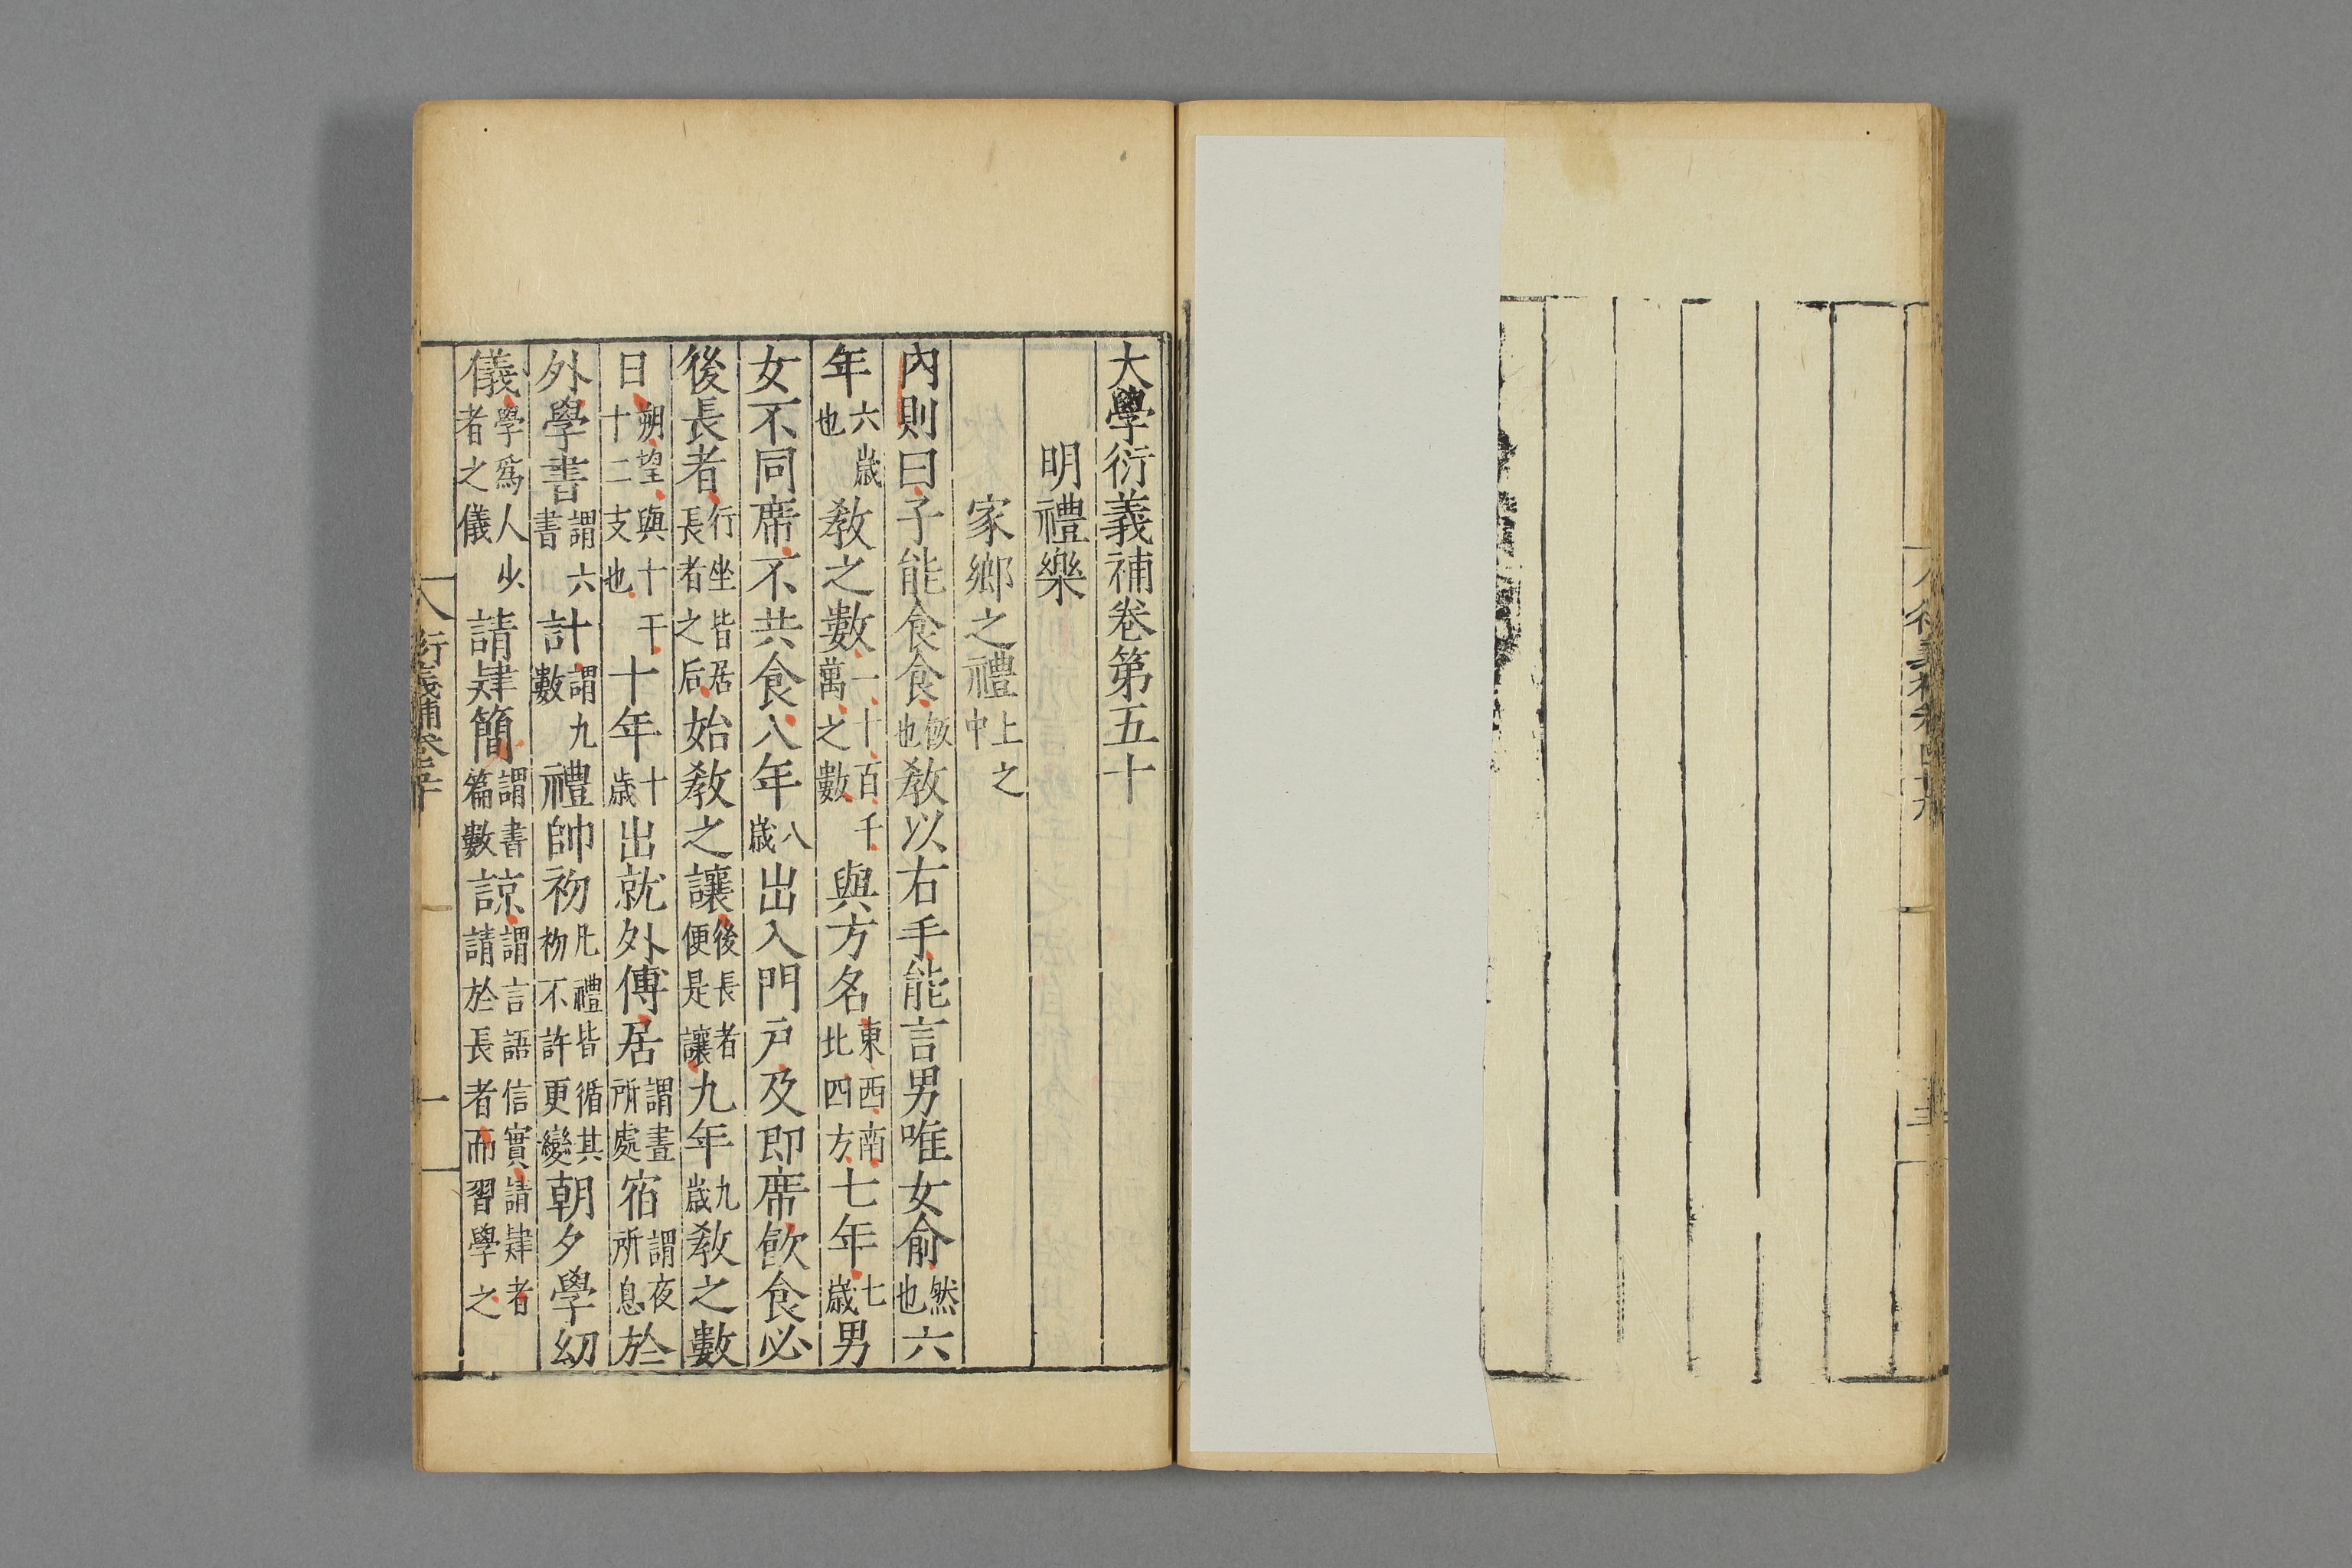 大學衍義補卷第五十
明禮樂
家鄉之禮上之中
內則曰子能食食飯也教以右手能言男唯女俞然也六
年六歲也教之數一十百千萬之數與方名東西南北四方七年七歲男
女不同席不共食八年八歲出入門戶及即席飲食必
後長者行坐皆居長者之后始教之讓後長者便是讓九年九歲教之數
日朔望與十干十二支也十年十歲出就外傅居謂晝所處宿謂夜所息於
外學書謂六書計謂九數禮帥初凡禮皆循其初不許更變朝夕學幼
儀學爲人少者之儀請肄簡謂書篇數諒謂言語信實請肄者請於長者而習學之
衍義補卷五十 一